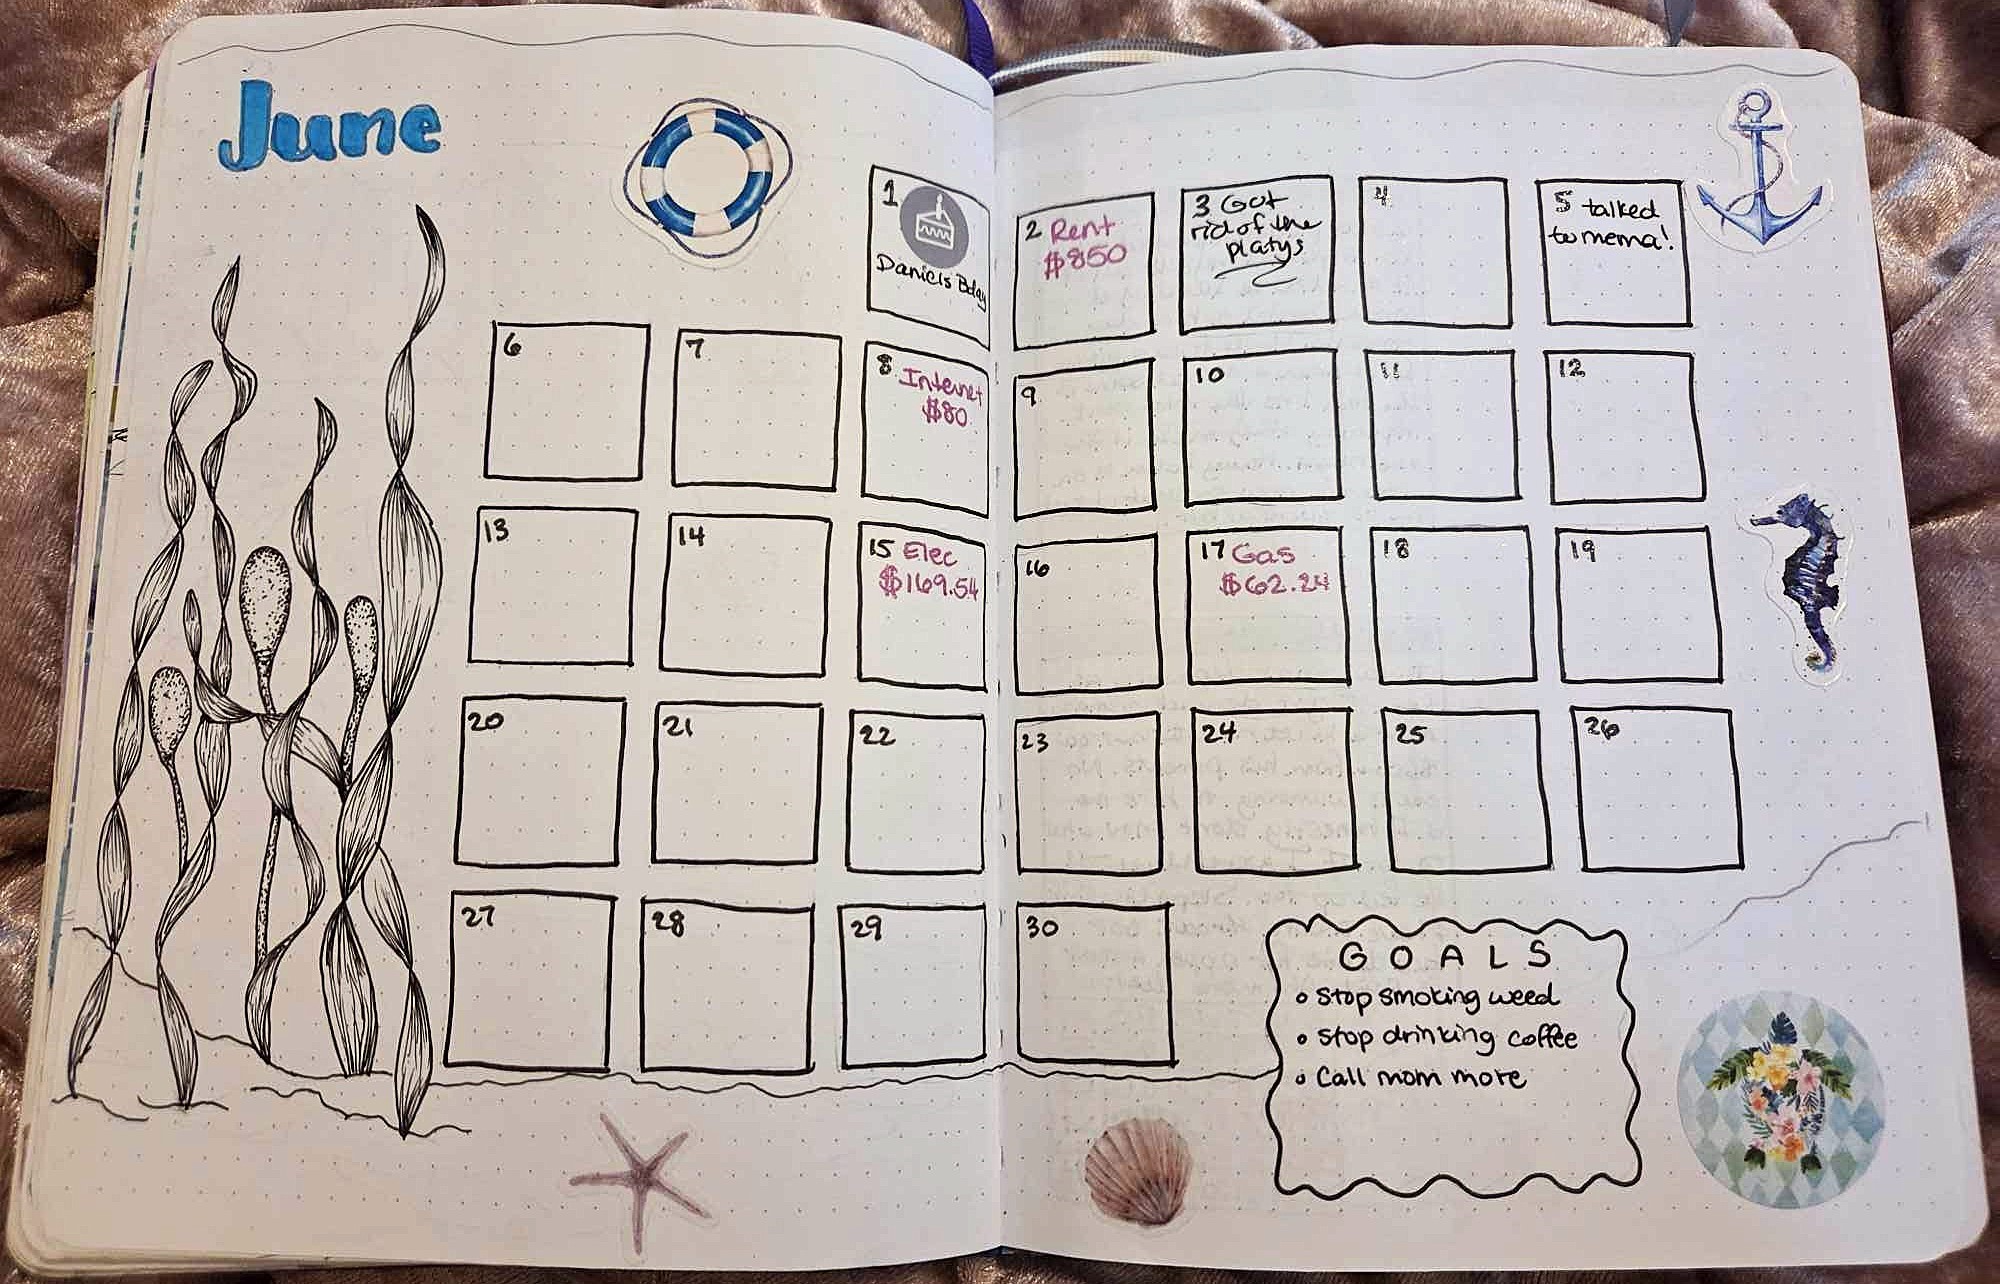 June
1
Daniels Bday
2 Rent
$850
3 Got
rid of the
platys
4
5 talked
to mema!
6
7
8 Internet
$80
9
10
11
12
13
14
15 Elec
$169.54
16
17 Gas
$62.24
18
19
20
21
22
23
24
25
26
27
28
29
30
GOALS
Stop smoking weed
Stop drinking coffee
Call mom more